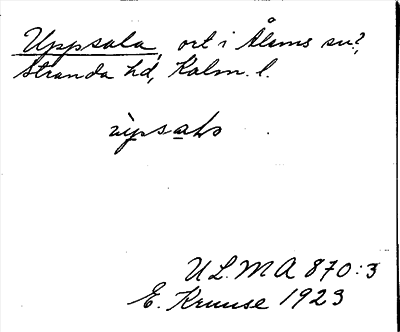 Uppsala, ort i Ålems sn?,
Stranda hd, Kalm. l.
U L M A 870:3
E. Kruuse 1923